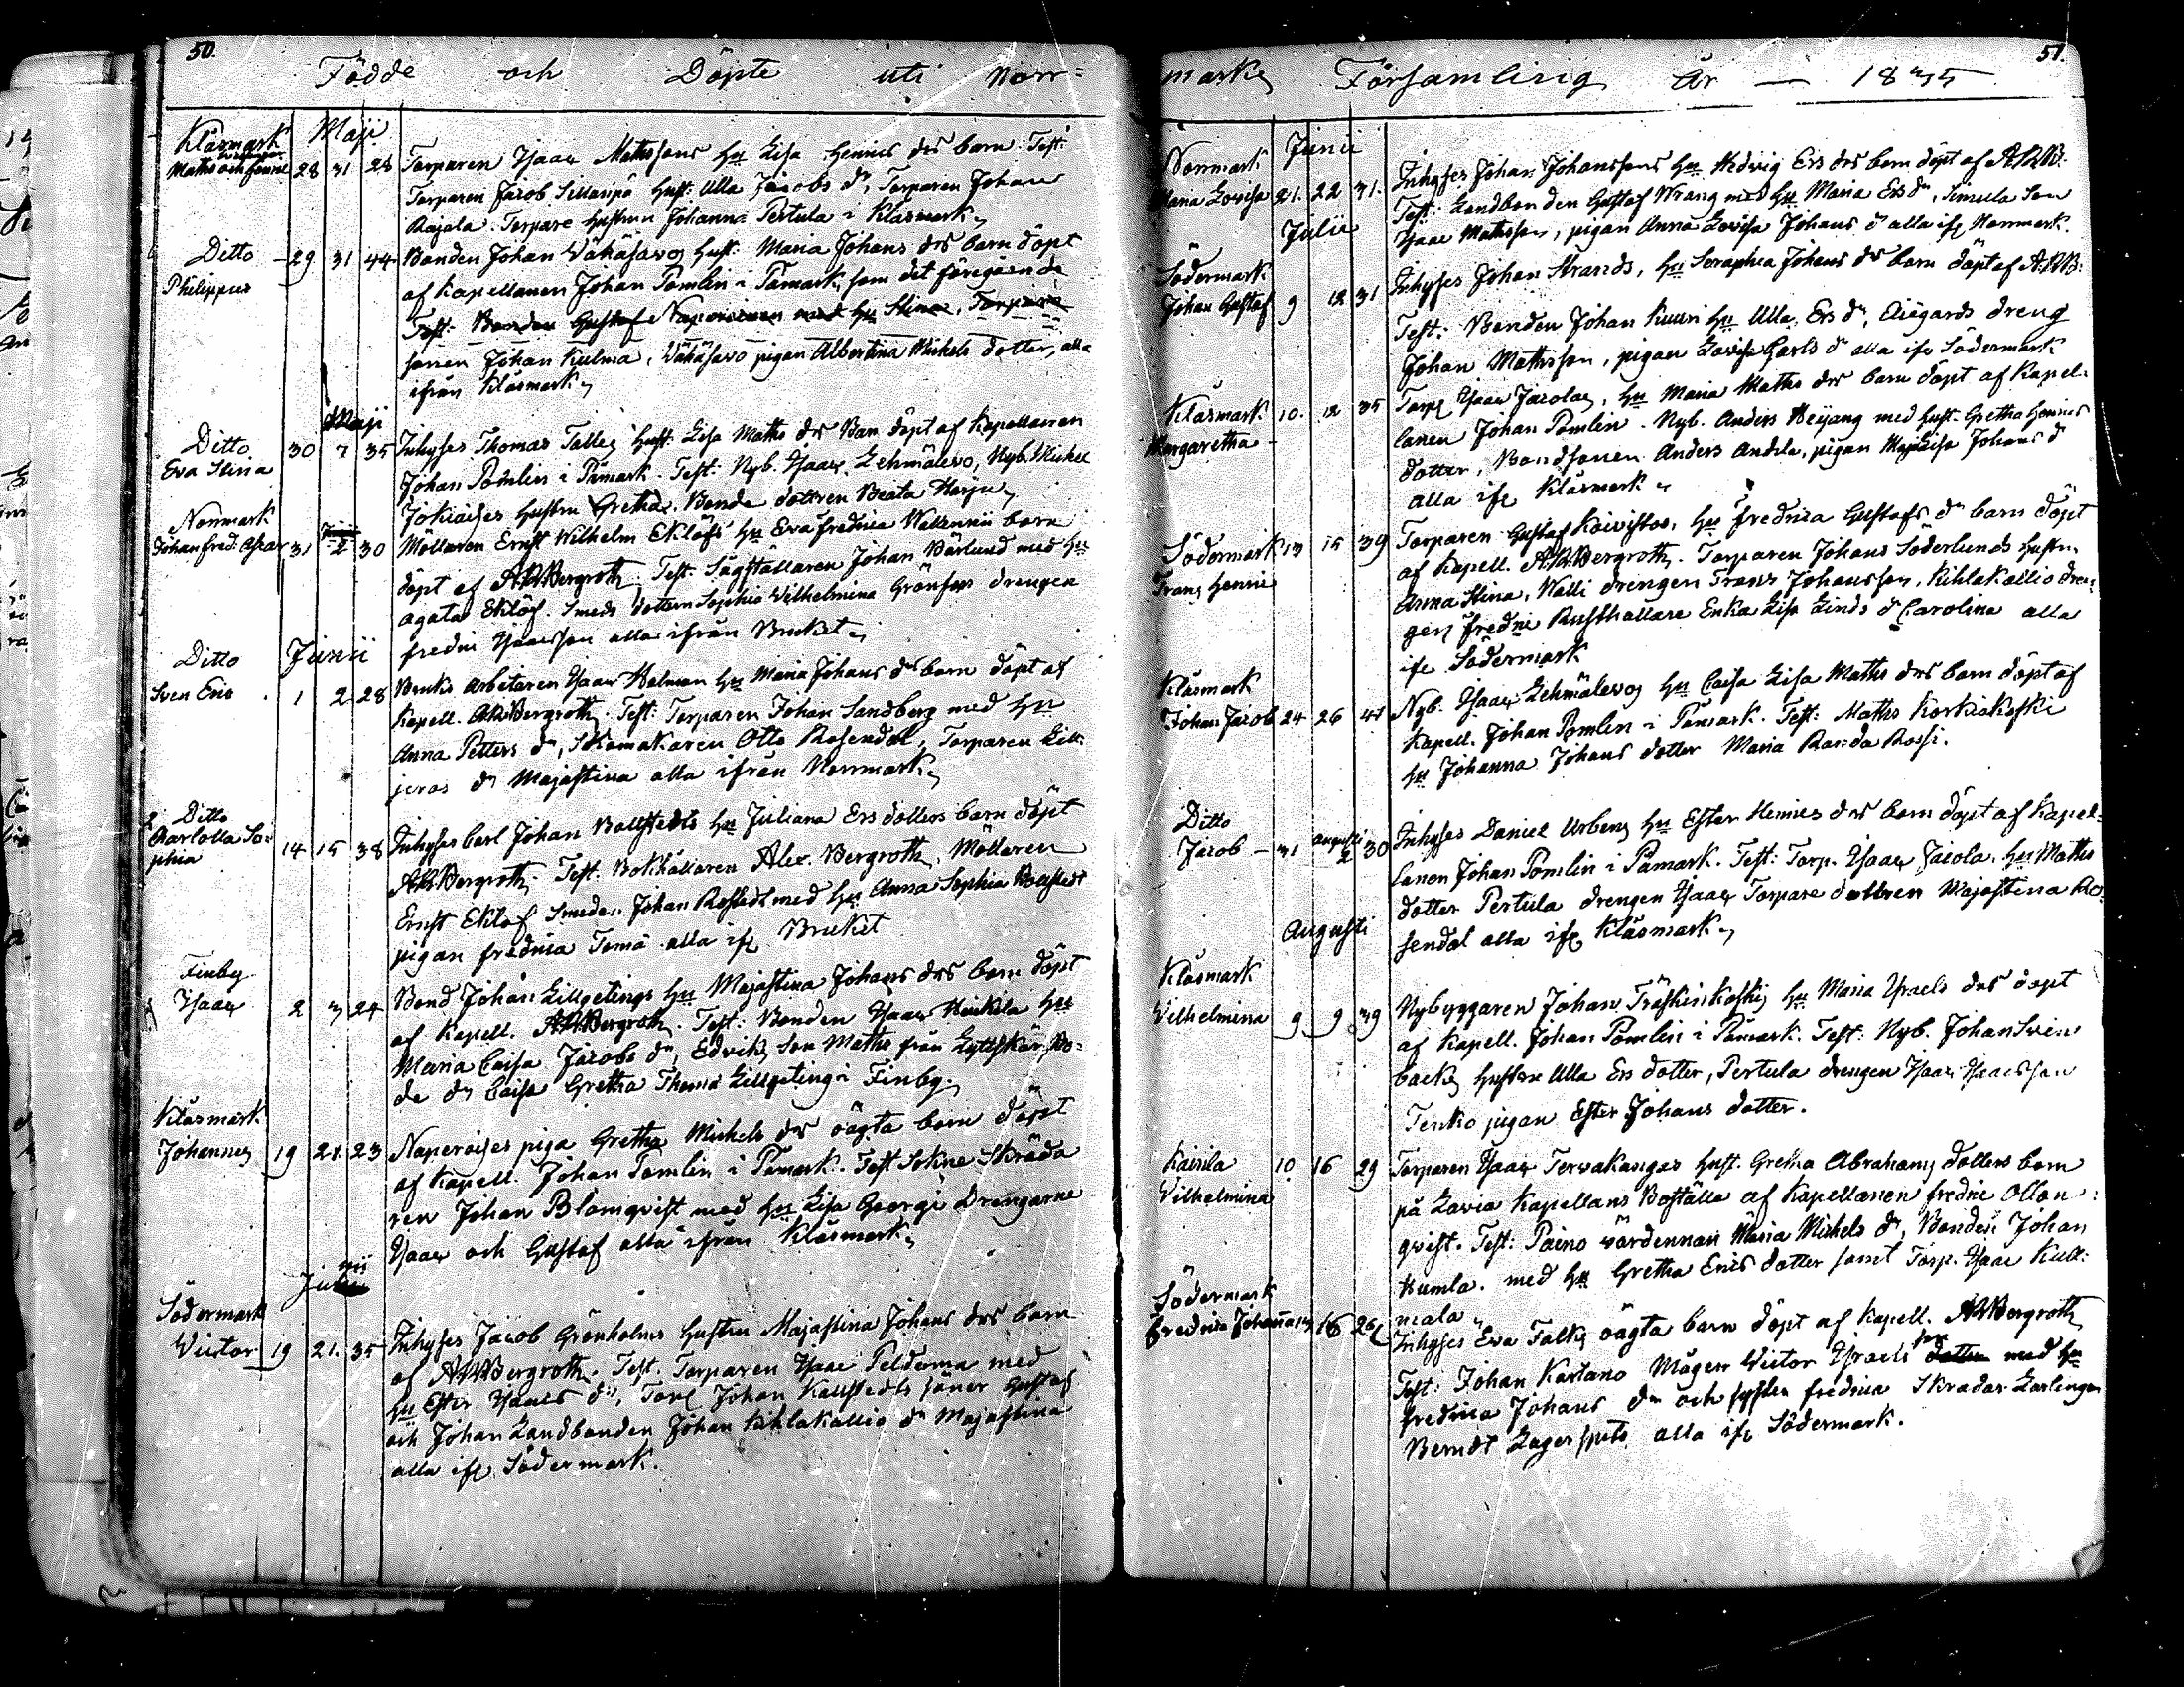 50.
Födde och Döpte uti Norr=
Klåsmark Maji
Maths och Henric 28 31 28 Torparen Isaac Mathssons Hu Lisa Henrics drs barn. Test:
Torparen Jacob Sillanpä Hust: Ulla Jacobs dr, Torparen Johan
Rajala. Torpare hustrun Johanna Pertula i Klåsmark
Ditto 29 31 44 Bonden Johan Vähäsavo Hust: Maria Johans drs barn döpt
Philippus
af Kapellanen Johan Pomlin i Påmark, som det föregående
Test: Bonden Gustaf Naporinen med Hu Stina, Torpare
sonen Johan Kulma, Vähäsavo pigan Albertina Michels dotter, alla
ifrån Klåsmark
Maji
Ditto 30 7 35 Inhyses Thomas Talleg Hust: Lisa Maths drs Barn döpt af Kapellanen
Eva Stina
Johan Pomlin i Påmark. Test: Nyb. Isaac Lehmälevo, Nyb. Michel
hustru Gretha. Bonde dottren Beata Harju
Norrmark
Johan Fred. Oscar 31 2 30 Möllaren Ernst Wilhelm Eklöfs Hu Eva Fredrica Wallennii barn
döpt af ARBergroth. Test: Sågställaren Johan Bärlund med Hu
Agata Eklöf. Smeds dottern Sophia Vilhelmina Grönfors drengen
Fredric Isacsson alla ifrån Bruket
Ditto Junii
Sven Eric 1 2 28 Bruks Arbetaren Isaac Holman Hu Maria Johans drs barn döpt af
Kapell. ARBergroth. Test: Torparen Johan Sandberg med Hu
Anna Petters dr, Skomakaren Otto Rosendal, Torparen Lill
jeros dr Majastina alla ifrån Norrmark
Ditto
Charlotta So-
phia 14 15 38 Inhyses Carl Johan Bollstedts Hu Juliana Ers dotters barn döpt
ARBergroth. Test: Bokhållaren Alex. Bergroth, Möllaren
Ernst Eklöf Smeden Johan Rostedt med Hu Anna Sophia Bollstedt
pigan Fredrica Tomä alla ifr Bruket
Finby
Isaac 2 3 24 Bond Johan Lillgetings Hu Majastina Johans drs barn döpt
af Kapell. ARBergroth. Test: Bonden Isaac Heikila Hu
Maria Caisa Jacobs dr, Edviks Son Maths från Lyttskär, Bo-
de dr Caisa Gretha Thomä Lillgeting i Finby
Klåsmark
Johannes 19 21. 23 piga Gretha Michels drs oägta barn döpt
af Kapell. Johan Pomlin i Påmark. Test: Sokne Skräda
ren Johan Blomqvist med Hu Lisa Georgi Drengarne
Isaac och Gustaf alla ifrån Klåsmark
Junii
Södermark
Victor 19 21. 35 Inhyses Jacob Grönholms Hustru Majastina Johans drs barn
af ARBergroth. Test: Torparen Isaac Pelderma med
Hu Ester Isaacs dr, Torp Johan Kallstedts söner Gustaf
och Johan Landbonden Johan Kihlakallio dr Majastina
alla ifr Södermark.
51.
marks Församling År — 1835
Norrmark Junii
Maria Lovisa 21. 22 31. Inhyses Johan Johanssons Hu Hedvig Ers drs barn döpt af ARB:
Test: Landbonden Gustaf Wrang med Hu Maria Ers dr, Simula Son
Julii
Isaac Mathsson, pigan Anna Lovisa Johans dr alla ifr Norrmark.
Södermark
Johan Gustaf 9 12 31 Inhyses Johan Strands, Hu Seraphia Johans drs barn döpt af ARB:
Test: Bonden Johan Kuuri Hu Ulla Ers dr, dreng
Johan Mathsson, pigan Lovisa Carls dr alla ifr Södermark
Klåsmark 10. 12 35 Torp Isaac Jacola, Hu Maria Maths drs barn döpt af Kapel-
Margaretha
lanen Johan Pomlin. Nyb. Anders Heijang med Hust. Gretha Henrics
dotter, Bondsonen Anders Andela, pigan Majalisa Johans dr
alla ifr Klåsmark
Södermark 13 15 39 Torparen Gustaf Koivistos, Hu Fredrica Gustafs dr barn döpt
Frans Henric
af Kapell. ARBergroth. Torparen Johans Söderlunds hustru
Anna Stina, Walli drengen Frans Johansson, Kihlakallio dren-
gen Fredric Rusthållare Enka Lisa Linds dr Carolina alla
ifr Södermark
Klåsmark
Johan Jacob 24 26 41 Nyb. Isaac Lehmälevos Hu Caisa Lisa Maths drs barn döpt af
Kapell. Johan Pomlin i Påmark. Test: Maths Korkiakoski
Hu Johanna Johans dotter Maria Randa Rossi.
Ditto
Jacob 31 Augusti 2 30 Inhyses Daniel Urberg Hu Ester Henrics drs barn döpt af Kapel-
lanen Johan Pomlin i Påmark. Test: Torp. Isaac Jacola, Hu Maths
dotter Pertula drengen Isaac Torpare dottren Majastina Ro-
Augusti
sendal alla ifr Klåsmark
Klåsmark
Vilhelmina 9 9 39 Nybyggaren Johan Träskinkoski Hu Maria Israels drs döpt
af Kapell. Johan Pomlin i Påmark. Test: Nyb. Johan Svin
backs Hustru Ulla Ers dotter, Pertula drengen Isaac Isacsson
Tenko pigan Ester Johans dotter.
Kairila 10. 16 29 Torparen Isaac Tervakangas Hust. Gretha Abrahams dotters barn
Vilhelmina
på Lavia Kapellans Boställe af Kapellanen Fredric Ollon-
qvist. Test: Paino värdennan Maria Michels dr, Bonden Johan
Humla. med Hu Gretha Erics dotter samt Torp. Isaac Kull-
mala
Södermark
Fredrica Johanna 13 16 26 Inhyses Eva Falks oägta barn döpt af Kapell. ARBergroth
Test: Johan Kartano Mågen Victor Israels son dotter med Hu
Fredrica Johans dr och syster Fredrica Skradar Lärlingen
Berndt Lagerspets alla ifr Södermark.